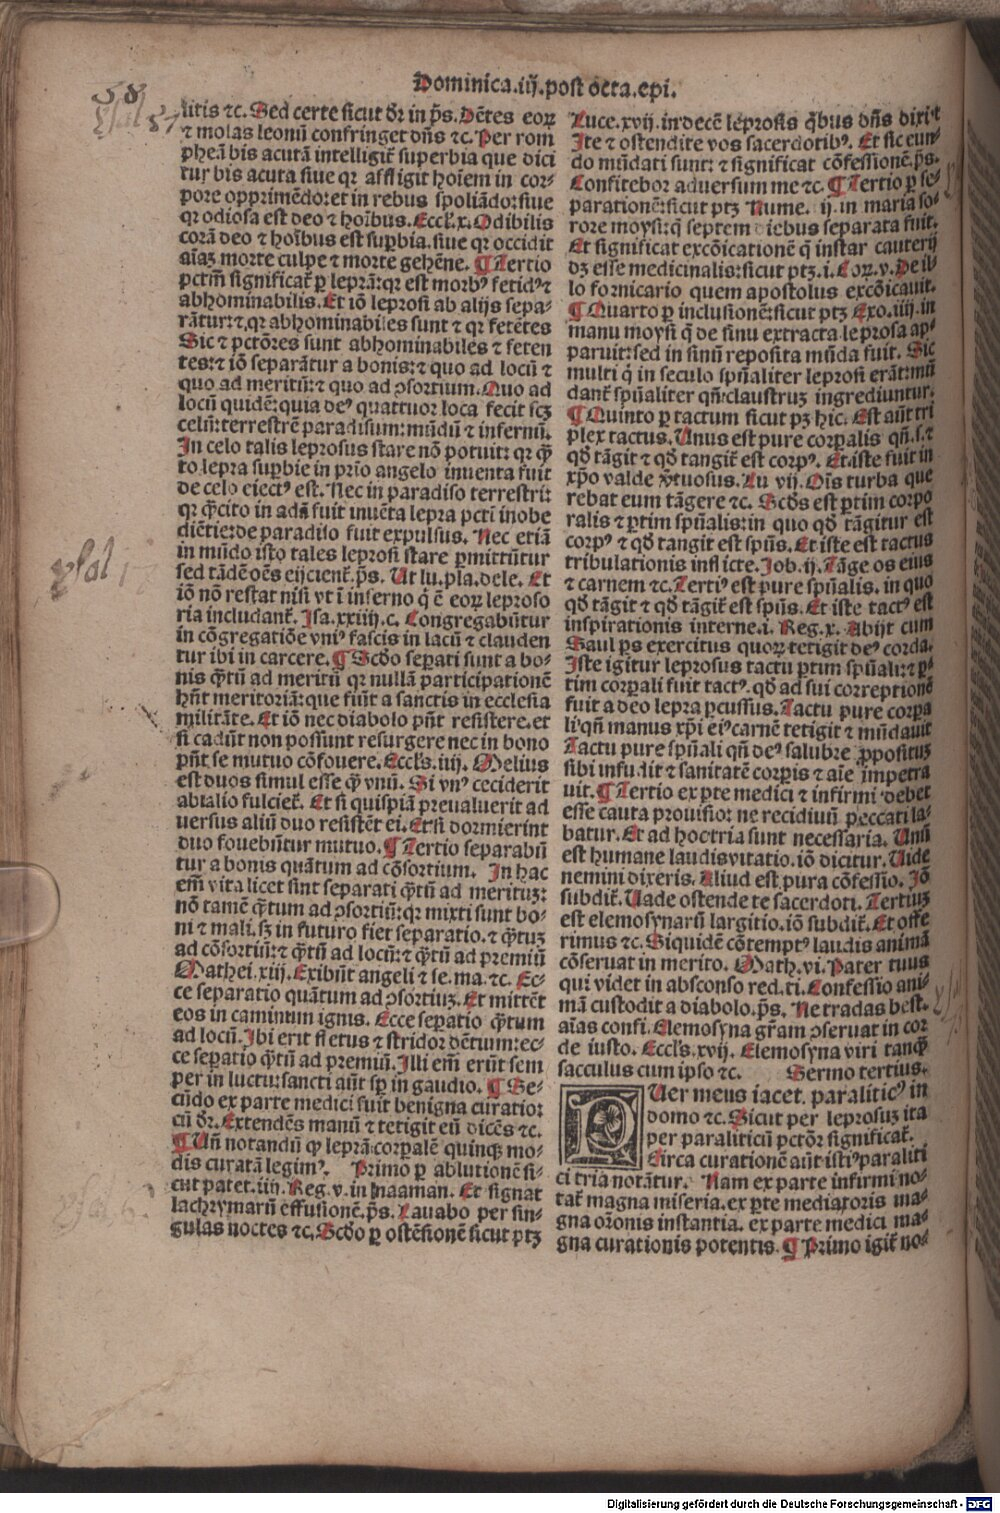 Dominica.iij.post octa.epi.
58
psal 57
litis ⁊c. Sed certe sicut dr̄ in p̄s. Dētes eoꝝ
⁊ molas leonū confringet dn̄s ⁊c. Per rom
pheā bis acutā intelligit̄ superbia que dici
tur bis acuta siue qꝛ affligit hoīem in cor⸗
pore opprimēdo: et in rebus spoliādo: siue
qꝛ odiosa est deo ⁊ hoībus. Eccl̄. x. Odibilis
corā deo ⁊ hoībus est suꝑbia. siue qꝛ occidit
aīaꝫ morte culpe ⁊ morte gehēne. ¶ Tertio
pctm̄ significat̄ ꝑ leprā: qꝛ est morbꝰ fetidꝰ ⁊
abhominabilis. Et iō leprosi ab alijs sepa⸗
rātur: ⁊, qꝛ abhominabiles sunt ⁊ qꝛ fetētes
Sic ⁊ pctōres sunt abhominabiles ⁊ feten
tes: ⁊ iō separātur a bonis: ⁊ quo ad locū ⁊
quo ad meritū: ⁊ quo ad ↄsortium. Quo ad
locū quidē: quia deꝰ quattuor loca fecit scꝫ
celū: terrestrē paradisum: mūdū ⁊ infernū.
In celo talis leprosus stare nō potuit: qꝛ q̄
to lepra suꝑbie in prīo angelo inuenta fuit
de celo eiectꝰ est. Nec in paradiso terrestri:
qꝛ q̄cito in adā fuit inuēta lepra pctī inobe
diētie: de paradiso fuit expulsus. Nec etiā
in mūdo isto tales leprosi stare ꝑmittūtur
sed tādē oēs eijcient̄. p̄s. Ut lu. pla. dele. Et
iō nō restat nisi vt ī inferno q̇ ē eoꝝ leproso
ria includant̄. Isa. xxiiij. c. Congregabūtur
in cōgregatiōe vniꝰ fascis in lacū ⁊ clauden
tur ibi in carcere. ¶ Scd̄o seꝑati sunt a bo⸗
nis q̄tū ad meritū qꝛ nullā participationē
hn̄t meritoriā: que fiūt a sanctis in ecclesia
militāte. Et iō nec diabolo pn̄t resistere. et
si cadūt non possunt resurgere nec in bono
pn̄t se mutuo cōfouere. Eccl̄s. iiij. Melius
est duos simul esse q̄ vnū. Si vnꝰ ceciderit
ab alio fulciet̄. Et si quispiā preualuerit ad
uersus aliū duo resistēt ei. Et si dormierint
duo fouebūtur mutuo. ¶ Tertio separabū
tur a bonis quātum ad cōsortium. In hac
em̄ vita licet sint separati q̄tū ad merituꝫ:
nō tamē q̄tum ad ↄsortiū: qꝛ mixti sunt bo⸗
ni ⁊ mali. sꝫ in futuro fiet separatio. ⁊ q̄tuꝫ
ad cōsortiū: ⁊ q̄tū ad locū: ⁊ q̄tū ad premiū
Mathei. xiij. Exibūt angeli ⁊ se. ma. ⁊c. Ec⸗
ce separatio quātum ad ↄsortiuꝫ. Et mittēt
eos in caminum ignis. Ecce seꝑatio q̄tum
ad locū. Ibi erit fletus ⁊ stridor dētium: ec⸗
ce seꝑatio q̄tū ad premiū. Illi em̄ erūt sem
per in luctu: sancti aūt sꝑ in gaudio. ¶ Se⸗
cūdo ex parte medici fuit benigna curatio:
cū dr̄. Extendēs manū ⁊ tetigit eū dicēs ⁊c.
¶ Un̄ notandū ꝙ leprā: corpalē quinqꝫ mo⸗
dis curatā legimꝰ. Primo ꝑ ablutionē si⸗
cut patet. iiij. Reg. v. in Naaman. Et signat
lachrymarū effusionē. p̄s. Lauabo per sin⸗
gulas noctes ⁊c. Scd̄o ꝑ ostēsionē sicut ptꝫ
psal
psal, 6.
Luce. xvij. in decē leprosis q̇bus dn̄s dixit
Ite ⁊ ostendite vos sacerdotibꝰ. Et sic eun⸗
do mūdati sunt: ⁊ significat cōfessionē. p̄s.
Confitebor aduersum me ⁊c. ¶ Tertio ꝑ se⸗
parationē: sicut ptꝫ Nume. ij. in maria so⸗
rore moysi: q̄ septem diebus separata fuit.
Et significat excōicationē q̄ instar cauterij
dꝫ esse medicinalis: sicut ptꝫ. i. Coꝝ. v. De il⸗
lo fornicario quem apostolus excōicauit.
¶ Quarto ꝑ inclusionē: sicut ptꝫ Exo. iiij. in
manu moysi q̄ de sinu extracta leprosa ap⸗
paruit: sed in sinū reposita mūda fuit. Sic
multi q̇ in seculo spūaliter leprosi erāt: mū
dant̄ spūaliter qn̄ claustruꝫ ingrediuntur.
¶ Quinto ꝑ tactum sicut pꝫ hic. Est aūt tri
plex tactus. Unus est pure corꝑalis qn̄. s. ⁊
qd̄ tāgit ⁊ qd̄ tangit̄ est corpꝰ. Et iste fuit in
xp̄o valde ꝟtuosus. Lu vij. Oīs turba que
rebat eum tāgere ⁊c. Scd̄s est ꝑtim corpo
ralis ⁊ ꝑtim spūalis: in quo qd̄ tāgitur est
corpꝰ ⁊ qd̄ tangit est spūs. Et iste est tactus
tribulationis inflicte. Job. ij. Tāge os eius
⁊ carnem ⁊c. Tertiꝰ est pure spūalis. in quo
qd̄ tāgit ⁊ qd̄ tāgit̄ est spūs. Et iste tactꝰ est
inspirationis interne. i. Reg. x. Abijt cum
Saul ꝑs exercitus quoꝝ tetigit deꝰ corda.
Iste igitur leprosus tactu ꝑtim spūali: ⁊ ꝑ⸗
tim corꝑali fuit tactꝰ. qd̄ ad sui correptionē
fuit a deo lepra ꝑcussus. Tactu pure corpa
li qn̄ manus xp̄i eiꝰ carnē tetigit ⁊ mūdauit
Tactu pure spūali qn̄ deꝰ salubre ꝓposituꝫ
sibi infudit ⁊ sanitatē corꝑis ⁊ aīe impetra
uit. ¶ Tertio ex ꝑte medici ⁊ infirmi debet
esse cauta prouisio: ne recidiuū peccati la⸗
batur. Et ad hoc tria sunt necessaria. Unū
est humane laudis vitatio. iō dicitur. Uide
nemini dixeris. Aliud est pura cōfessio. Iō
subdit̄. Uade ostende te sacerdoti. Tertiuꝫ
est elemosynarū largitio. iō subdit̄. Et offe
rimus ⁊c. Siquidē cōtemptꝰ laudis animā
cōseruat in merito. Math. vi. Pater tuus
qui videt in absconso red. ti. Confessio ani⸗
mā custodit a diabolo. p̄s. Ne tradas best.
aīas confi. Elemosyna gr̄am ↄseruat in cor
de iusto. Eccl̄s. xvij. Elemosyna viri tanq̄
sacculus cum ipso ⁊c. Sermo tertius.
PUer meus iacet. paraliticꝰ in
domo ⁊c. Sicut per leprosuꝫ ita
per paraliticū pctōr significat̄.
Circa curationē aūt istiꝰ paraliti
ci tria notātur. Nam ex parte infirmi no⸗
tat̄ magna miseria. ex ꝑte mediatoris ma⸗
gna or̄onis instantia. ex parte medici ma⸗
gna curationis potentis. ¶ Primo igit̄ no⸗
Digitalisierung gefördert durch die Deutsche Forschungsgemeinschaft - DFG